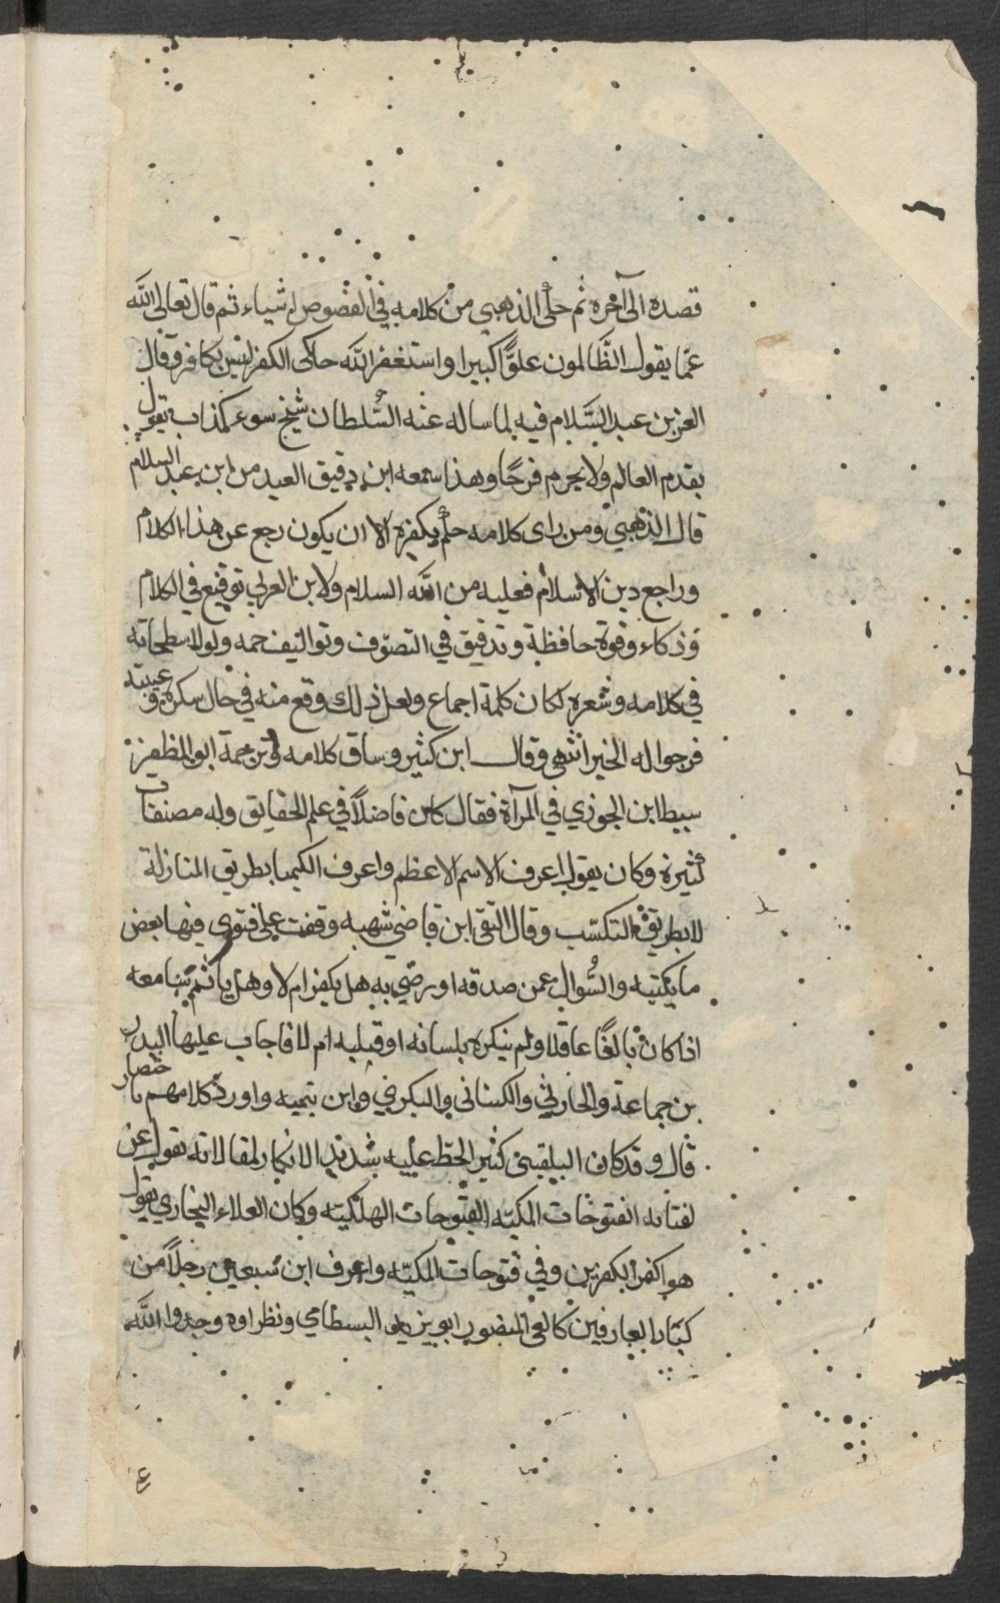 قصده الى آخره ثم حكى الذهبي من كلامه في الفصوص اشياء ثم قال تعالى الله
عمّا يقول الظالمون علوًّا كبيرا واستغفر الله حاكى الكفر ليس بكافر وقال
العز بن عبد السّلام فيه لما ساله عنه السُّلطان شيخ سوء كذاب يقول
بقدم العالم ولا يحرم فرجًا وهذا سمعه ابن دقيق العيد من ابن عبد السلام
قال الذهبي ومن راى كلامه حكم بكفره الا ان يكون رجع عن هذا الكلام
وراجع دين الاسلام فعليه من الله السلام ولابن العربي توقيع في الكلام
وذكاء وقوة حافظة وتدقيق في التصوّف وتواليف جمه ولولا سطحاته
في كلامه وشعره لكان كلمة اجماع ولعل ذلك وقع منه في حال سكره وغيبته
فرجوا له الخير انتهى وقال ابن كثير وساق كلامه ترجمة ابو المظفر
سبط ابن الجوزي في المرآة فقال كان فاضلاً في علم الحقايق وله مصنفات
كثيرة وكان يقول اعرف الاسم الاعظم واعرف الكيميا بطريق المنازلة
لا بطريق التكسّب وقال التقى ابن قاضي شهبه وقفت على فتوى فيها بعض
ما يكتبه والسُّوال عمن صدقه او رضي به هل يكفر ام لا وهل ياثم سامعه
اذا كان بالغًا عاقلا ولم ينكره بلسانه او قلبه ام لا فاجاب عليها البدر
بن جماعة والحارثي والكناني والبكري وابن تيميه واورد كلامهم باختصار
قال وقد كان البلقيني كثير الحط عليه شديد الانكار لمقالاته يقول عن
لفتاته الفتوحات المكيّه الفتوحات الهلكيّه وكان العلاء البخاري يقول
هو اكفر الكفرين وفي فتوحات المكيّه واعرف ابن سبعين رجلاً من
كبّار العارفين المنصور ابو يزيد البسطامي ونظراوه وجدوا الله
ع